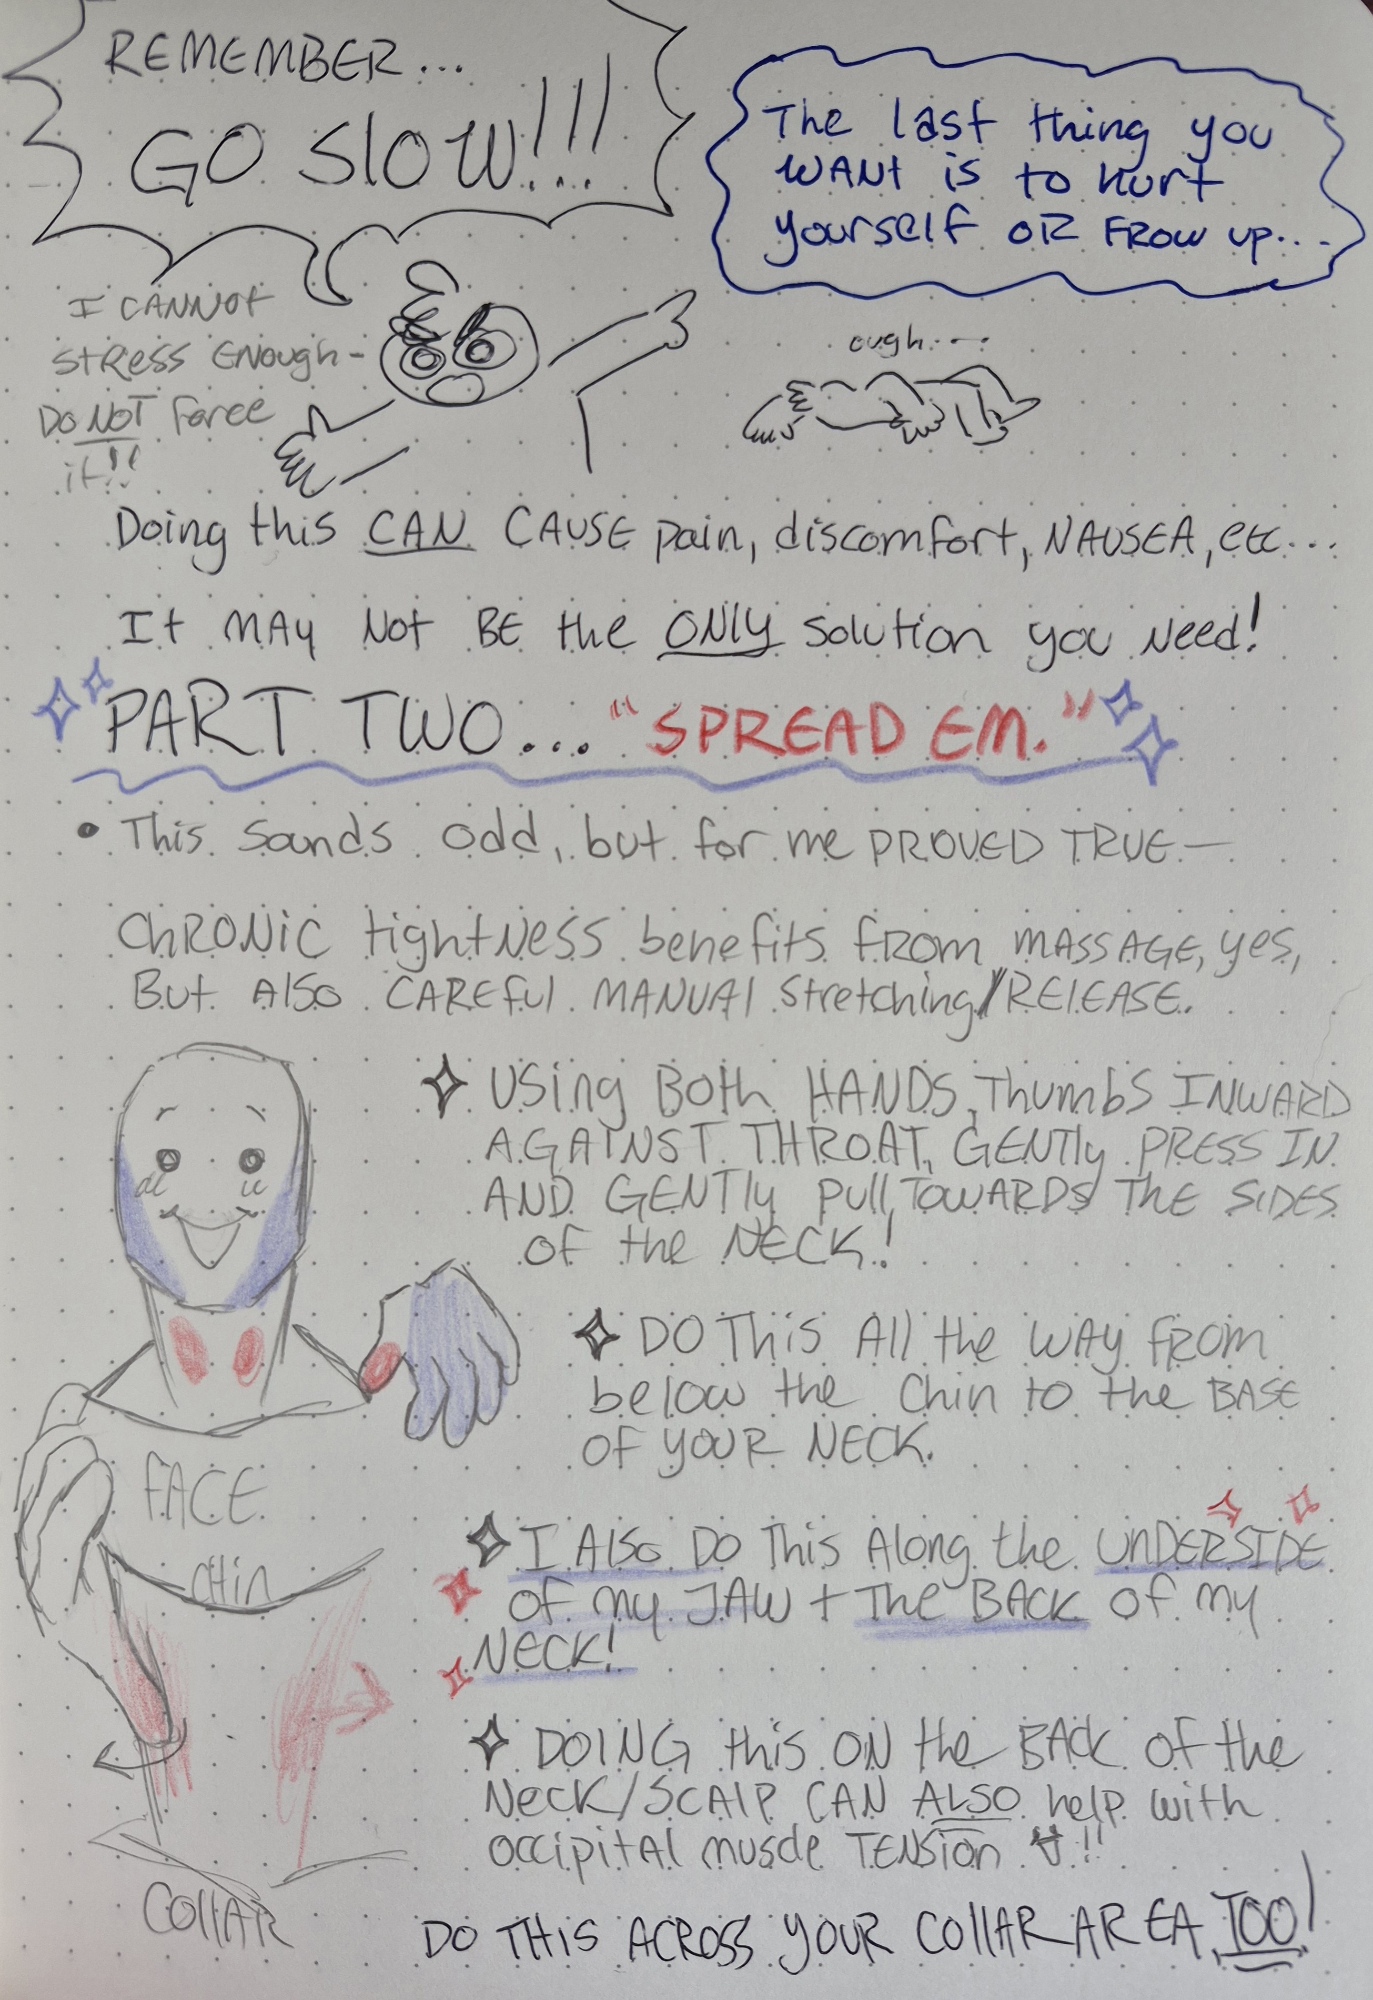 REMEMBER...
GO SLOW!!!...
The last thing you
WANT is to hurt
yourself OR FROW up...
I CANNOT
STRESS ENOUGH-
DO NOT Force
it!!
ough...
Doing this CAN CAUSE pain, discomfort, NAUSEA, etc...
It MAY NOT BE the ONLY solution you Need!
PART TWO... "SPREAD EM."
• This sounds odd, but for me PROVED TRUE—
CHRONIC tightNESS benefits from MASSAGE, yes,
But Also CAREful MANUAl stretching/RELEASE.
USing Both HANDS, Thumbs INWARD
AGAINST THROAT, GENTly PRESS IN
AND GENTly pull, TOWARDS THE SIDES
OF the NECK!
DO This All the WAY FROM
below the Chin to the BASE
OF YOUR NECK.
FACE
CHin
I Also DO This Along the UnDERSIDE
OF my JAW + The BACK OF my
NECK!
DOING this ON the BACK OF the
NECK/SCAlP CAN ALSO help with
occipitAl muscle TENSion !!
COllAR
DO THIS ACROSS YOUR COllAR AREA, TOO!